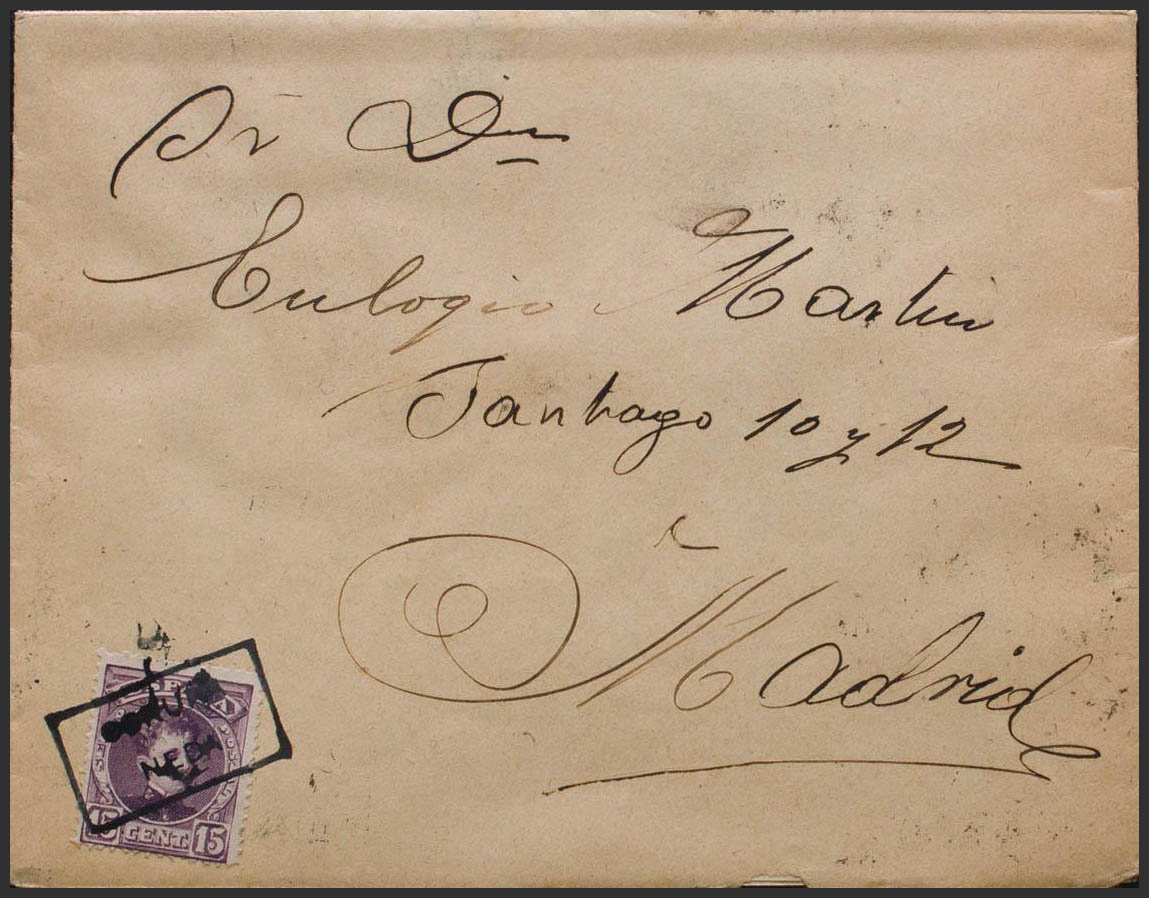 Sr Dn
Eulogio Martin
Santiago 10 y 12
Madrid
NEDA
15 CENT. 15